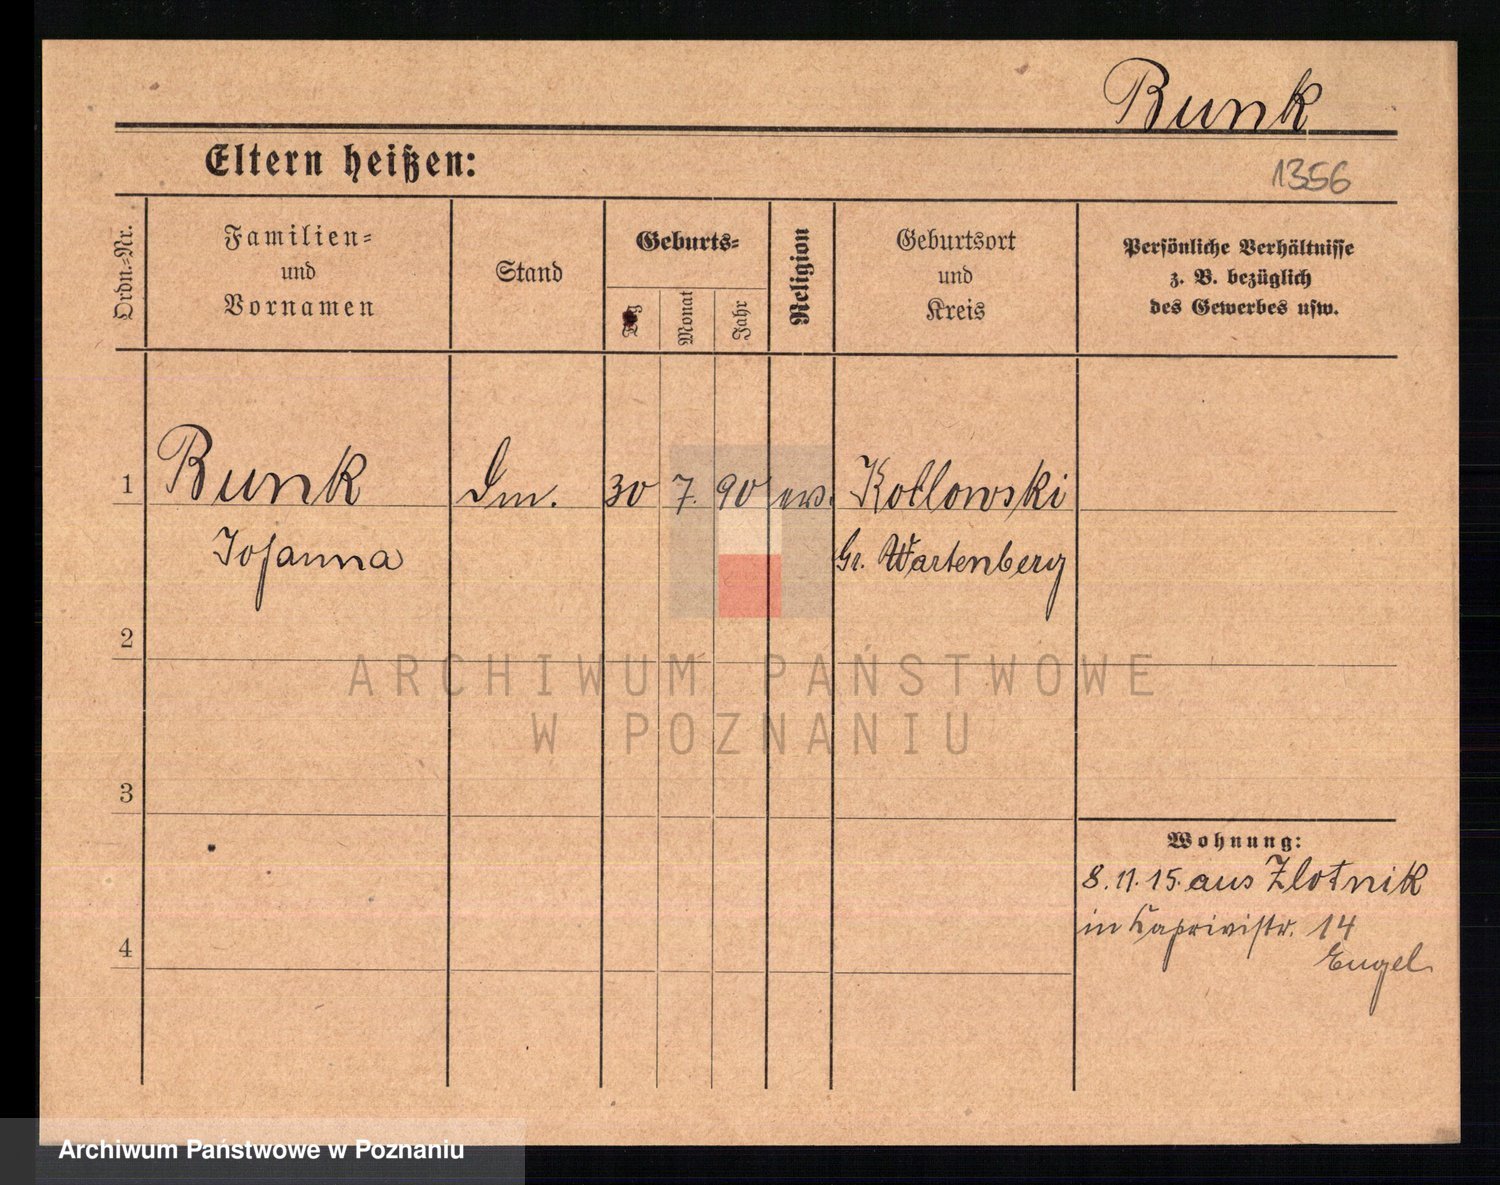 Bunk
Eltern heißen:
1356
Ordn.-Nr.
Familien-
und
Vornamen
Stand
Geburts-
Tag
Monat
Jahr
Religion
Geburtsort
und
Kreis
Persönliche Verhältnisse
z. B. bezüglich
des Gewerbes usw.
1 Bunk 30 7. 90 Kotlowski
Johanna Gr. Wartenberg
2
ARCHIWUM PAŃSTWOWE
W POZNANIU
3
Wohnung:
8. 11. 15. aus Zlotnik
in Kaprivistr. 14
4
Engel
Archiwum Państwowe w Poznaniu